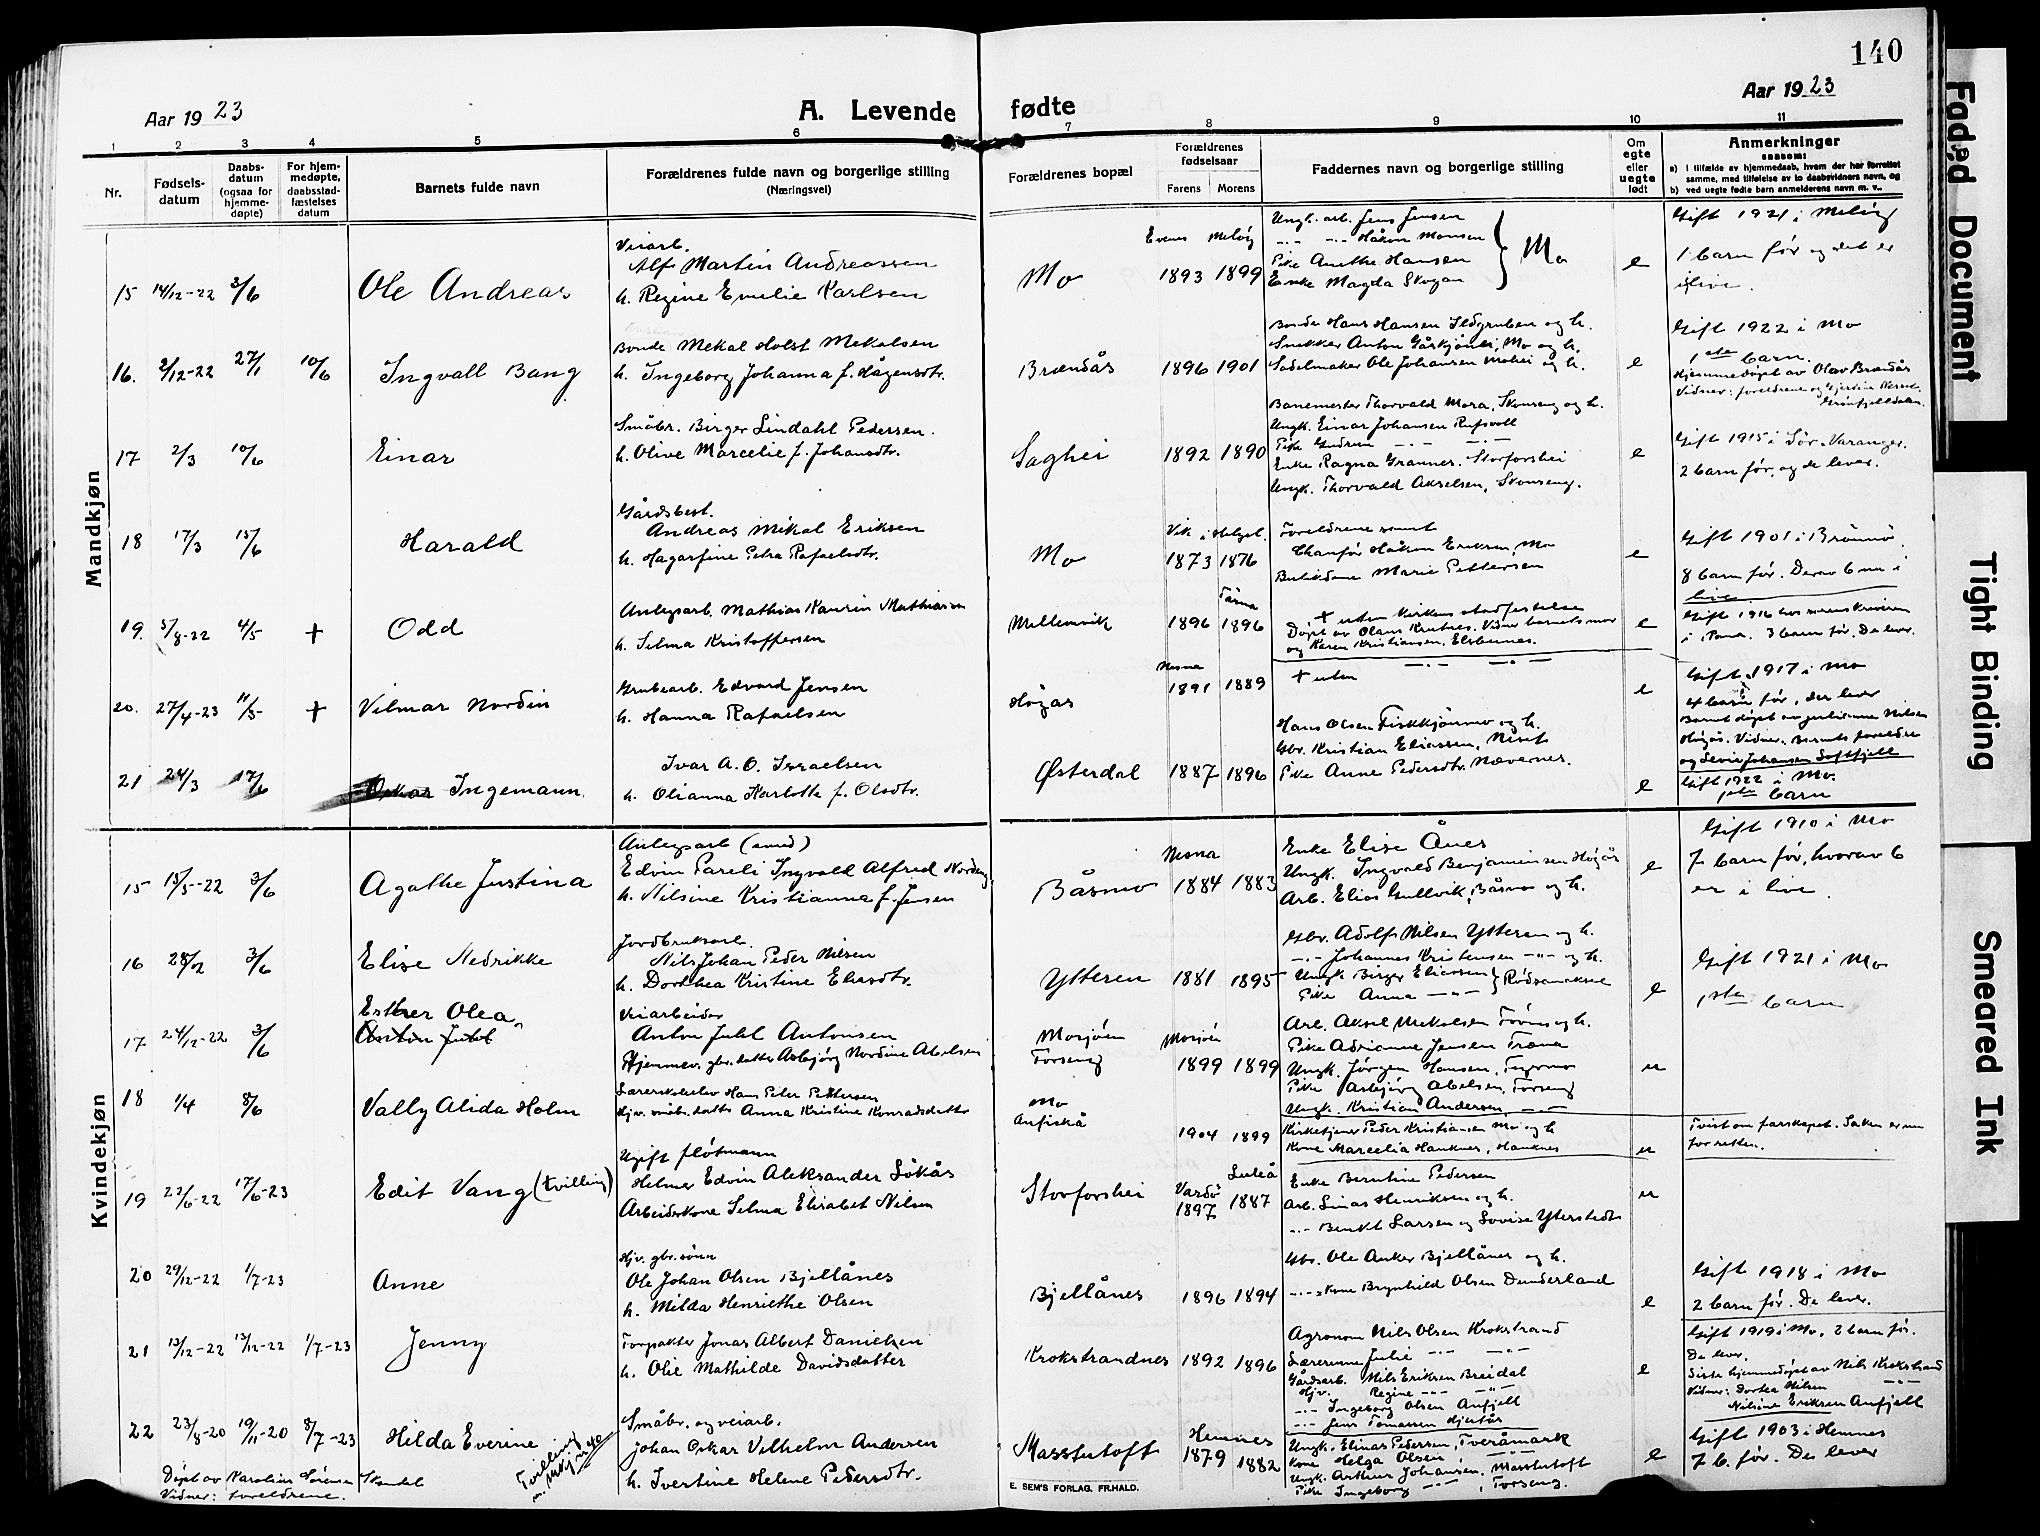 140
Aar 1923
A. Levende
fødte
Aar 1923
1 2 3 4 5 6 7 8 9 10 11
Nr.
Fødsels-
datum
Daabs-
datum
(ogsaa for
hjemme-
døpte)
For hjem-
medøpte,
daabsstad-
fæstelses
datum
Barnets fulde navn
Forældrenes fulde navn og borgerlige stilling
(Næringsvei)
Forældrenes bopæl
Forældrenes
fødselsaar
Farens Morens
Faddernes navn og borgerlige stilling
Om
egte
eller
uegte
født
Anmerkninger
saasom:
a) i tilfælde av hjemmedaab, hvem der har forrettet
samme, med tilføielse av to daabsvidners navn, og
b) ved uegte fødte barn anmelderens navn m. v..
Mandkjøn
15 14/12-22 3/6
Ole Andreas
Veiarb.
Alf Martin Andreassen
h. Regine Emelie Karlsen
Mo
Evenes Meløy
1893 1899
Ungk. arb. Jens Jensen
-"- -"- Håkon Monsen
Pike Anethe Hansen
Enke Magda Skogan
Mo
e
Gift 1921 i Meløy
1 barn før og det er
i live.
16. 2/12-22 27/1 10/6
Ingvall Bang
Bonde Mekal Holst Mekalsen
h. Ingeborg Johanna f. Hågensdtr.
Brændås
1896 1901
Bonde Hans Hansen Ildgruben og h.
Snekker Anton Gåskjønli, Mo og h.
Sadelmaker Ole Johansen Mohei og h.
e
Gift 1922 i Mo
1ste barn.
Hjemmedøpt av Olav Brændås
Vidner: foreldrene og
Grønfjelldalen.
17 2/3 10/6
Einar
Småbr. Birger Lindahl Pedersen.
h. Olive Marcelie f. Johansdtr.
Saghei
1892 1890
Banemester Thorvald Mora, Skonseng og h.
Ungk. Einar Johansen Rufsvoll
Pike Gudrun -"- -"-
Enke Ragna Granner. Storforshei
Ungk. Thorvald Akselsen, Skonseng.
e
Gift 1915 i Sør-Varanger.
2 barn før, og de lever.
18 17/3 15/6
Harald
Gårdsbest.
Andreas Mikal Eriksen
h. Hagarfine Petra Rafaelsdtr.
Mo
Vik i Helgel.
1873 1876
Foreldrene samt
Chaufør Håkon Eriksen, Mo
Butikdame Marie Pettersen
e
Gift 1901 i Brønnø.
8 barn før. Derav 6 nu i
live
19. 5/8-22 4/5 +
Odd
Anlegsarb. Mathias Kaurin Mathiassen
h. Selma Kristoffersen
Mellemvik
Tärna
1896 1896
+ uten kirkens stadfestelse
Døpt av Olaus Krutnes. Vidner barnets mor
og Karen Kristiansen, Elsbernes.
e
Gift 1916 hos sorenskriveren
i Rana. 3 barn før. De lever.
20. 27/4-23 11/5 +
Vilmar Nordin
Grubearb. Edvard Jensen
h. Hanna Rafaelsen
Høgås
Nesna
1891 1889
+ uten -"- -"-
e
Gift 1917 i Mo
4 barn før, der lever
Barnet døpt av Julianne Nilsen
Høgås. Vidner: Barnets foreldre
og Levis Johansen Loftfjell
21 24/3 17/6
Oskar Ingemann.
Ivar A. O. Israelsen
h. Olianna Karlotte f. Olsdtr.
Østerdal
1887 1896
Hans Olsen Fiskkjønmo og h.
Gbr. Kristian Eliassen,
Pike Anne Pedersdtr. Nævernes.
e
Gift 1922 i Mo.
1ste barn
Kvindekjøn
15 15/5-22 3/6
Agathe Justina
Anlegsarb (smed)
Edvin Pareli Ingvald Alfred Nordeng
h. Nilsine Kristianna f. Jensen
Båsmo
Nesna
1884 1883
Enke Elise Ånes
Ungk. Ingvald Benjaminsen Høgås
Arb. Elias Gullvik, Båsmo og h.
e
Gift 1910 i Mo
7 barn før, hvorav 6
er i live
16 28/2 3/6
Elise Nedrikke
Jordbruksarb.
Nils Johan Peder Nilsen
h. Dorthea Kristine Eliasdtr.
Ytteren
1881 1895
Gbr. Adolf Nilsen Ytteren og h.
-"- Johannes Kristensen -"- og h.
Ungk Birger Eliassen
Pike Anna -"-
e
Gift 1921 i Mo
1ste barn
17 24/12-22 3/6
Esther Olea
Anton Juhl
Veiarbeider
Anton Juhl Antonsen
Hjemmev. gbr. datter Asbjørg Nordine Abelsen
Mosjøen
Forseng
Mosjøen
1899 1899
Arb. Aksel Mekalsen og h.
Pike Adrianne Jensen Træna
Ungk. Jørgen Hansen,
Pike Asbjørg Abelsen, Forseng
Ungk. Kristian Andersen, -"-
u
18 1/4 8/6
Vally Alida Holm
Lærerskoleelev Hans Peter Pettersen
Hjv. småbr. datter Anna Kristine Konradsdatter
Mo
Anfiskå
1904 1899
Kirketjener Peder Kristiansen Mo og h
Kone Marcelia Hauknes, Hauknes
u
Tvist om farskapet. Saken er nu
for retten.
19 22/6-22 17/6-23
Edit Vang (tvilling)
Ugift fløtmann
Helmer Edvin Aleksander Løkås
Arbeiderkone Selma Elisabet Nilsen
Storforshei
Vardø Luleå
1897 1887
Enke Berntine Pedersen
Arb. Linas Henriksen og h.
-"- Benkt Larsen og Lovise Yterstedt
u
20 29/12-22 1/7-23
Anne
Hjv. gbr. sønn
Ole Johan Olsen Bjellånes
h. Milda Henriette Olsen
Bjellånes
1896 1894
Gbr. Ole Anker Bjellånes og h.
-"- kone Brynhild Olsen Dunderland
e
Gift 1918 i Mo
2 barn før. De lever.
21 13/12-22 13/12-22 1/7-23
Jenny
Forpakter Jonas Albert Danielsen
h. Olie Mathilde Davidsdatter
Krokstrandnes
1892 1896
Agronom Nils Olsen Krokstrand
Lærerinne Julie -"- -"-
Gårdsarb. Nils Eriksen Bredal
Hjv. Regine -"- -"-
-"- Ingeborg Olsen Anfjell
-"- Jens Tomassen Hjertås
e
Gift 1919 i Mo. 2 barn før.
De lever.
Siste hjemmedøpt av Nils Krokstrand
Vidner: Dortea Nilsen -"-
Nilsine Eriksen Anfjell
22 23/8-20 19/11-20 8/7-23
Hilda Everine
Tvilling
m. Mkj nr 40
Døpt av Karolius Sørensen
Vidner: foreldrene.
Småbr. og veiarb.
Johan Oskar Vilhelm Andersen
h. Ivertine Helene Pedersdtr.
Masstutoft
Hemnes
1879 1882
Ungk. Elinas Pedersen, Tveråmark
Kone Helga Olsen -"-
Ungk. Arthur Johansen, Masstutoft
Pike Ingeborg -"-, Forseng.
e
Gift 1903 i Hemnes
7 b. før. De lever
E. SEM'S FORLAG, FR.HALD.
Faded Document
Tight Binding
Smeared Ink